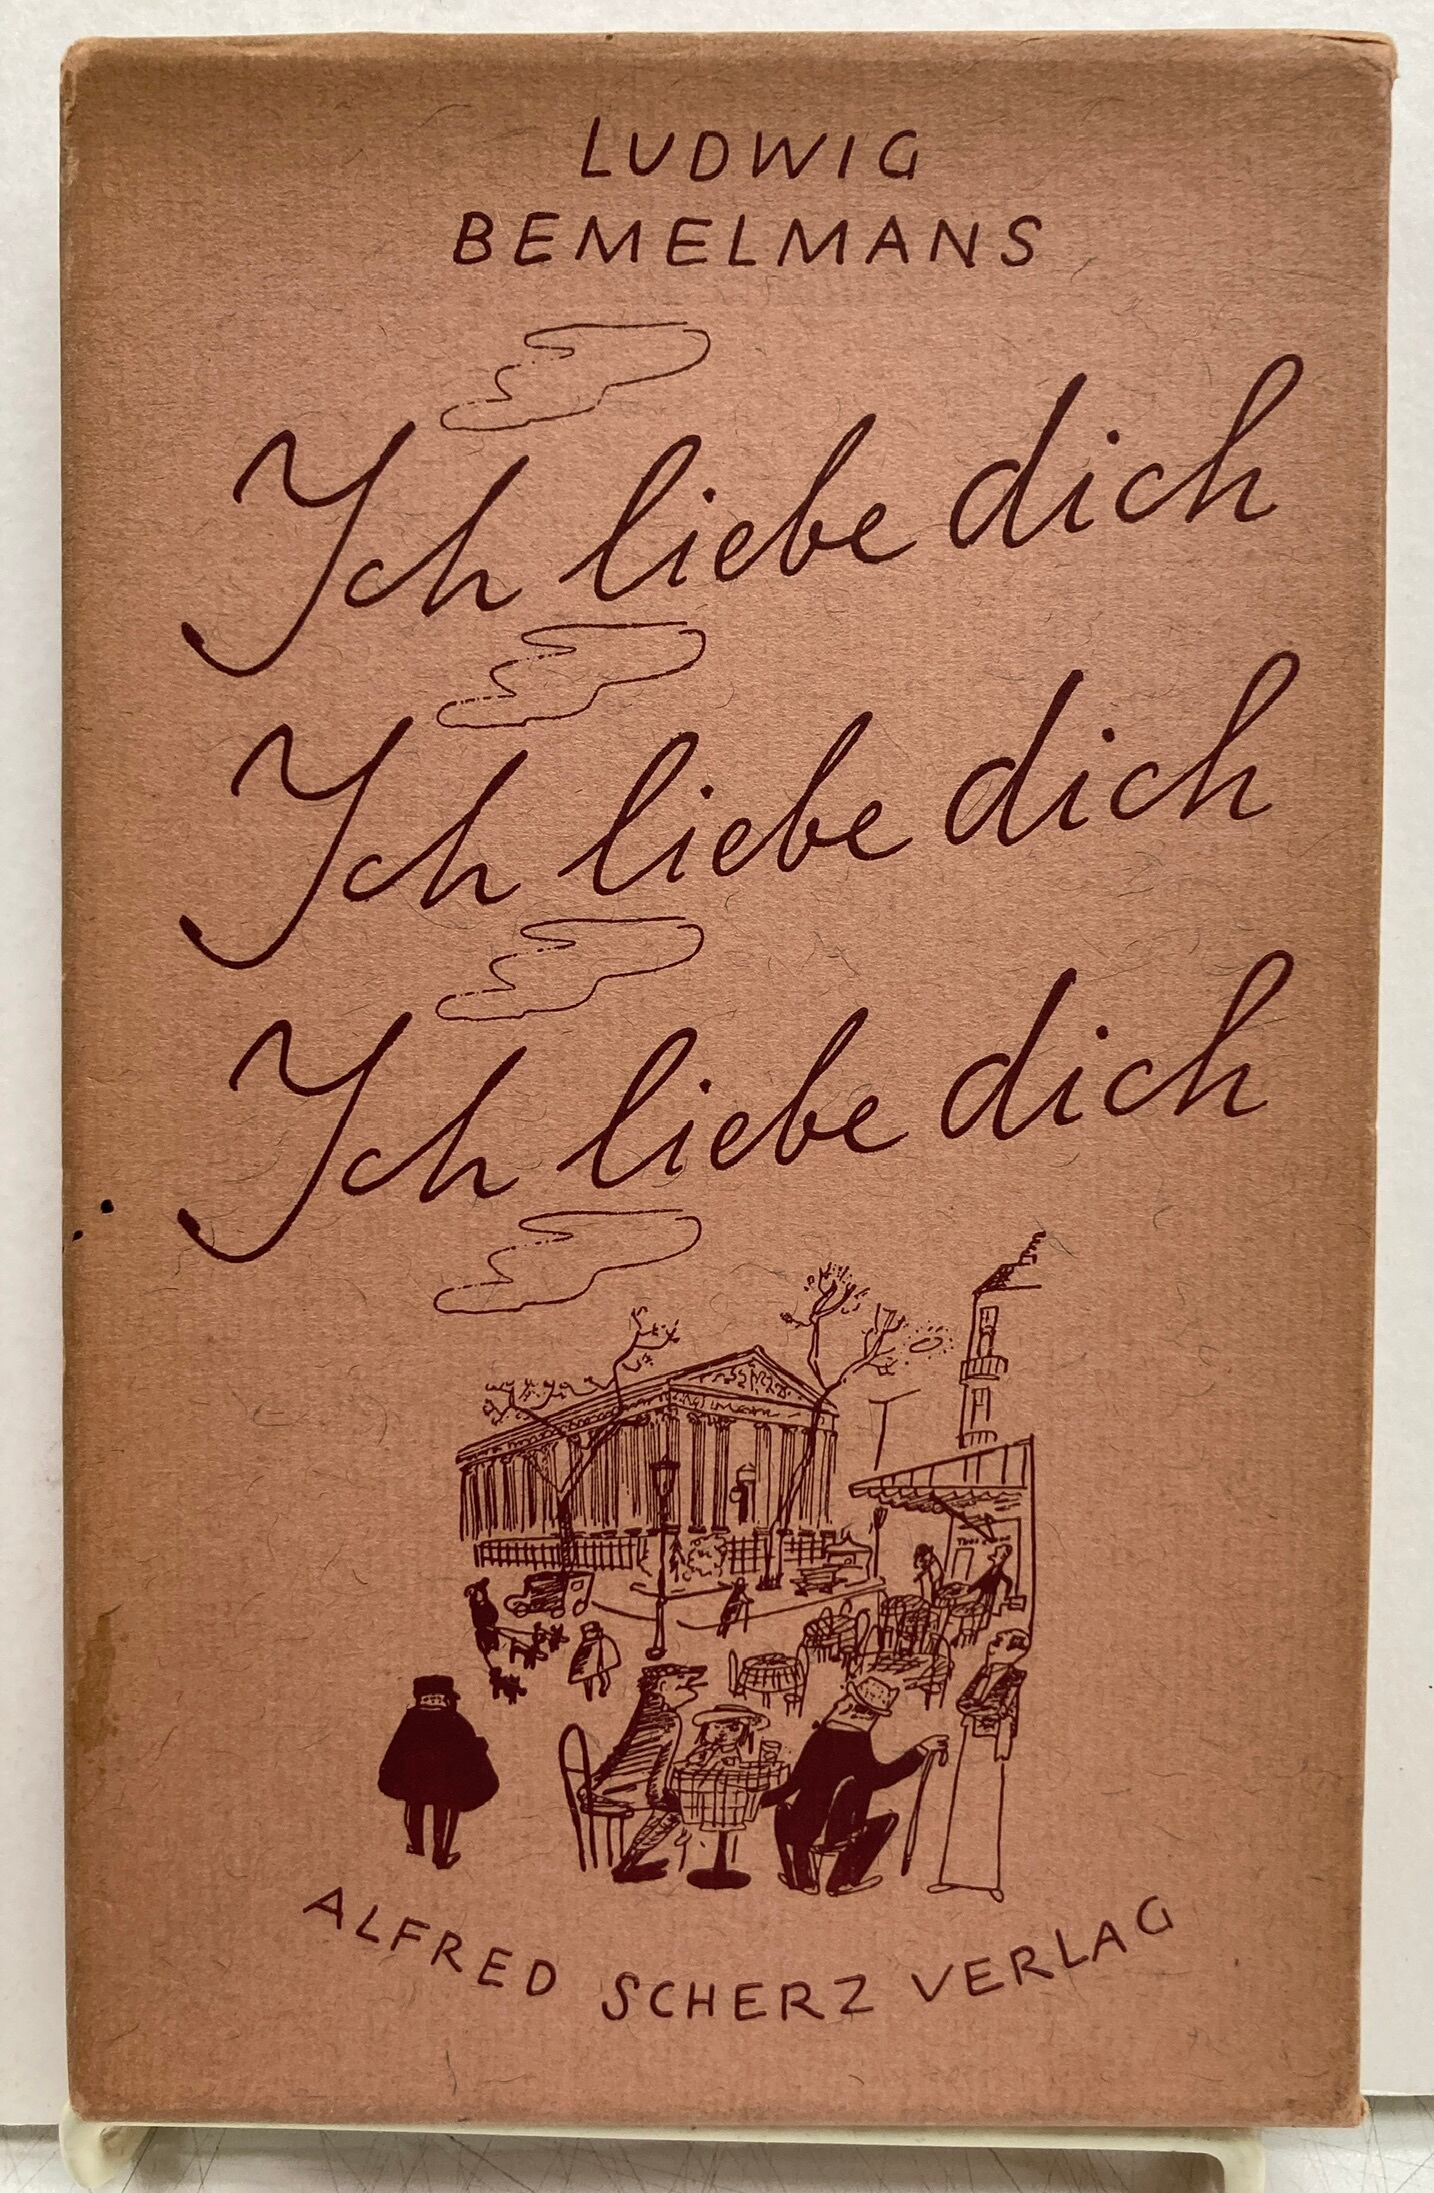 LUDWIG
BEMELMANS
Ich liebe dich
Ich liebe dich
Ich liebe dich
ALFRED SCHERZ VERLAG